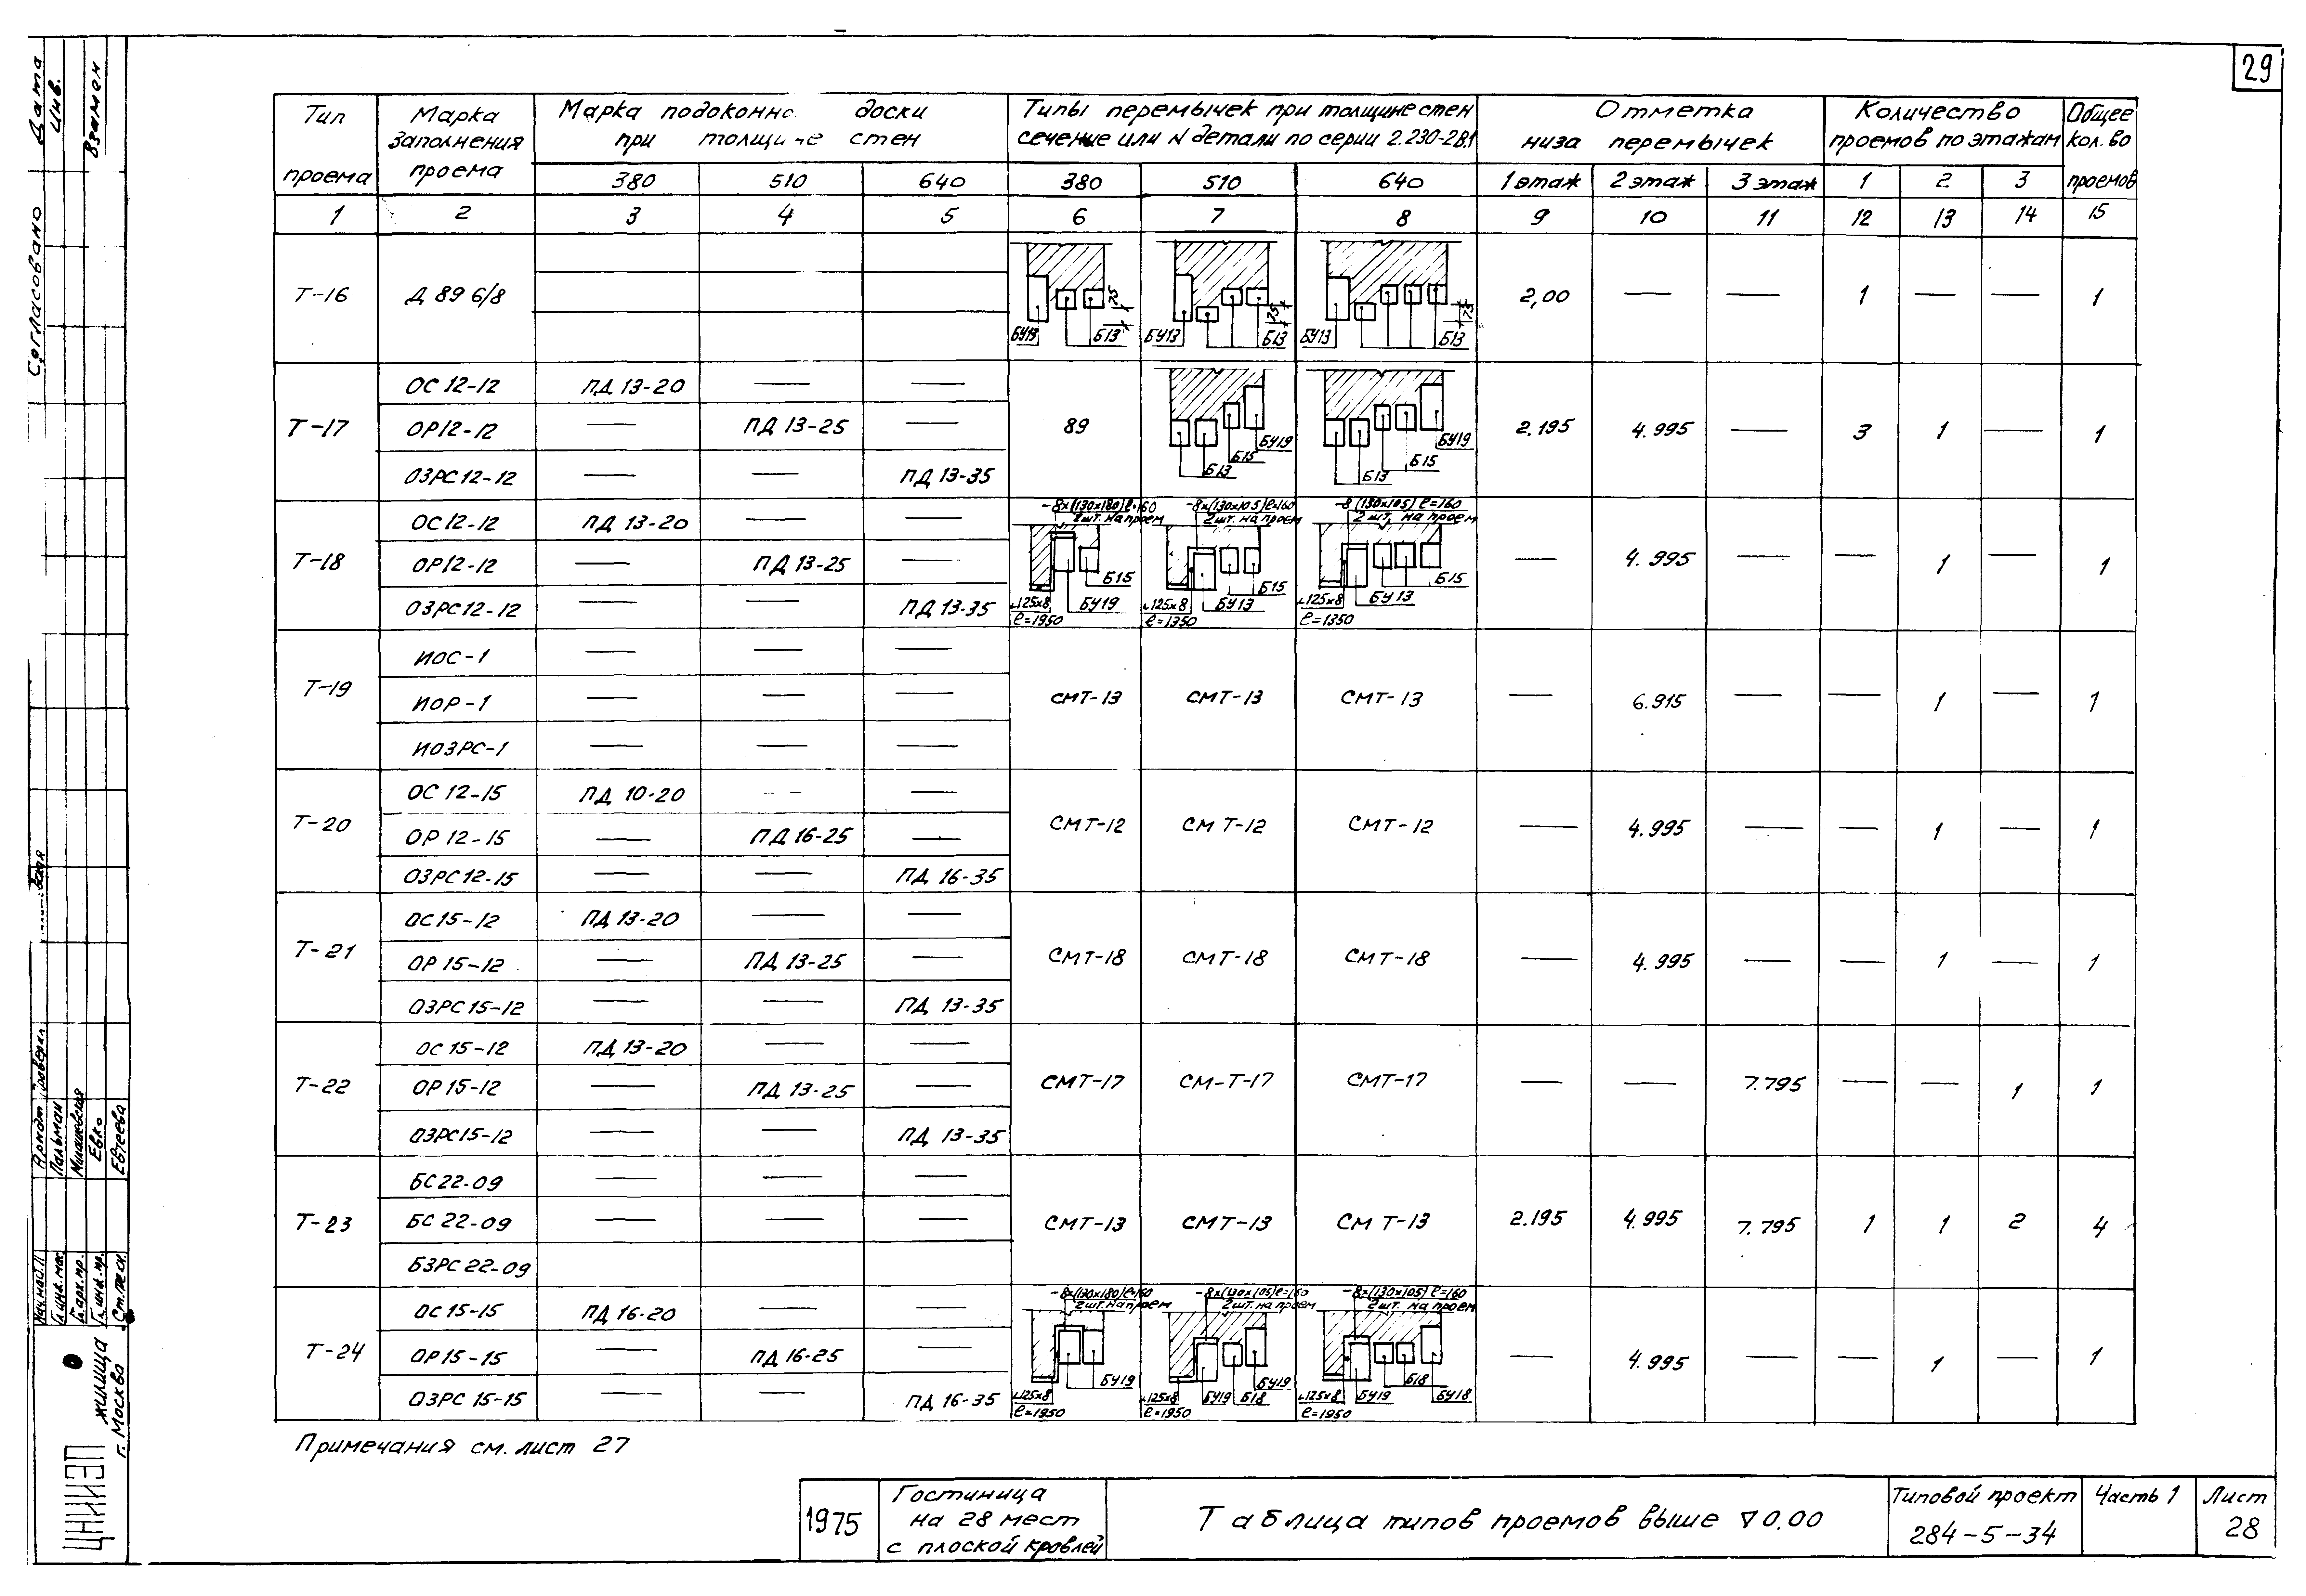 29
Тип проема
Марка заполнения проема
Марка подоконно доски при толщине стен
Типы перемычек при толщине стен сечение или N детали по серии 2.230-2В.1
Отметка низа перемычек
Количество проемов по этажам
Общее кол. во проемов
380 510 640 380 510 640 1 этаж 2 этаж 3 этаж 1 2 3
1 2 3 4 5 6 7 8 9 10 11 12 13 14 15
Т-16 Д 89 6/8 2,00 — — 1 — — 1
75 75 75
БУ13 Б13 БУ13 Б13 БУ13 Б13
ОС 12-12 ПД 13-20 — —
Т-17 ОР12-12 — ПД 13-25 — 89 2.195 4.995 — 3 1 — 1
БУ19 Б15 Б13 БУ19 Б15 Б13
ОЗРС12-12 — — ПД 13-35
-8х(130х180)ℓ=160 2шт. на проем -8х(130х105)ℓ=160 2шт. на проем -8(130х105) ℓ=160 2 шт. на проем
ОС12-12 ПД 13-20 — —
Т-18 ОР12-12 — ПД 13-25 — — 4.995 — — 1 — 1
Б15 Б15 Б15
ОЗРС12-12 — — ПД 13-35
∟125х8 БУ19 ∟125х8 БУ13 ∟125х8 БУ13
ℓ=1950 ℓ=1350 ℓ=1350
ИОС-1 — — —
Т-19 ИОР-1 — — — СМТ-13 СМТ-13 СМТ-13 — 6.915 — — 1 — 1
ИОЗРС-1 — — —
ОС 12-15 ПД 10-20 — —
Т-20 ОР 12-15 — ПД 16-25 — СМТ-12 СМ Т-12 СМТ-12 — 4.995 — — 1 — 1
ОЗРС12-15 — — ПД 16-35
ОС15-12 ПД 13-20 — —
Т-21 ОР 15-12 — ПД 13-25 — СМТ-18 СМТ-18 СМТ-18 — 4.995 — — 1 — 1
ОЗРС 15-12 — — ПД 13-35
ОС 15-12 ПД 13-20 — —
Т-22 ОР 15-12 — ПД 13-25 — СМТ-17 СМ-Т-17 СМТ-17 — — 7.795 — — 1 1
ОЗРС15-12 — — ПД 13-35
БС22-09 — — —
Т-23 БС 22-09 — — — СМТ-13 СМТ-13 СМ Т-13 2.195 4.995 7.795 1 1 2 4
БЗРС 22-09
-8х(130х180)ℓ=160 2шт. на проем -8х(130х105)ℓ=160 2шт. на проем -8х(130х105) ℓ=160 2шт. на проем
ОС 15-15 ПД 16-20 — —
Т-24 ОР 15-15 — ПД 16-25 — — 4.995 — — 1 — 1
ОЗРС 15-15 — — ПД 16-35
∟125х8 БУ19 ∟125х8 БУ19 Б18 БУ19 ∟125х8 БУ19 Б18 БУ18
ℓ=1950 ℓ=1950 ℓ=1950
Примечания см. лист 27
1975
Гостиница
на 28 мест
с плоской кровлей
Таблица типов проемов выше ▽ 0.00
Типовой проект
284-5-34
Часть 1
Лист
28
Дата
Инв.
Взамен
Согласовано
Арндт
Пальман
Минашевская
Евко
Евтеева
Гл.инж.мас.
Гл.арх.пр.
Гл.инж.пр.
Ст.техн.
ЦНИИЭП
жилища
г. Москва